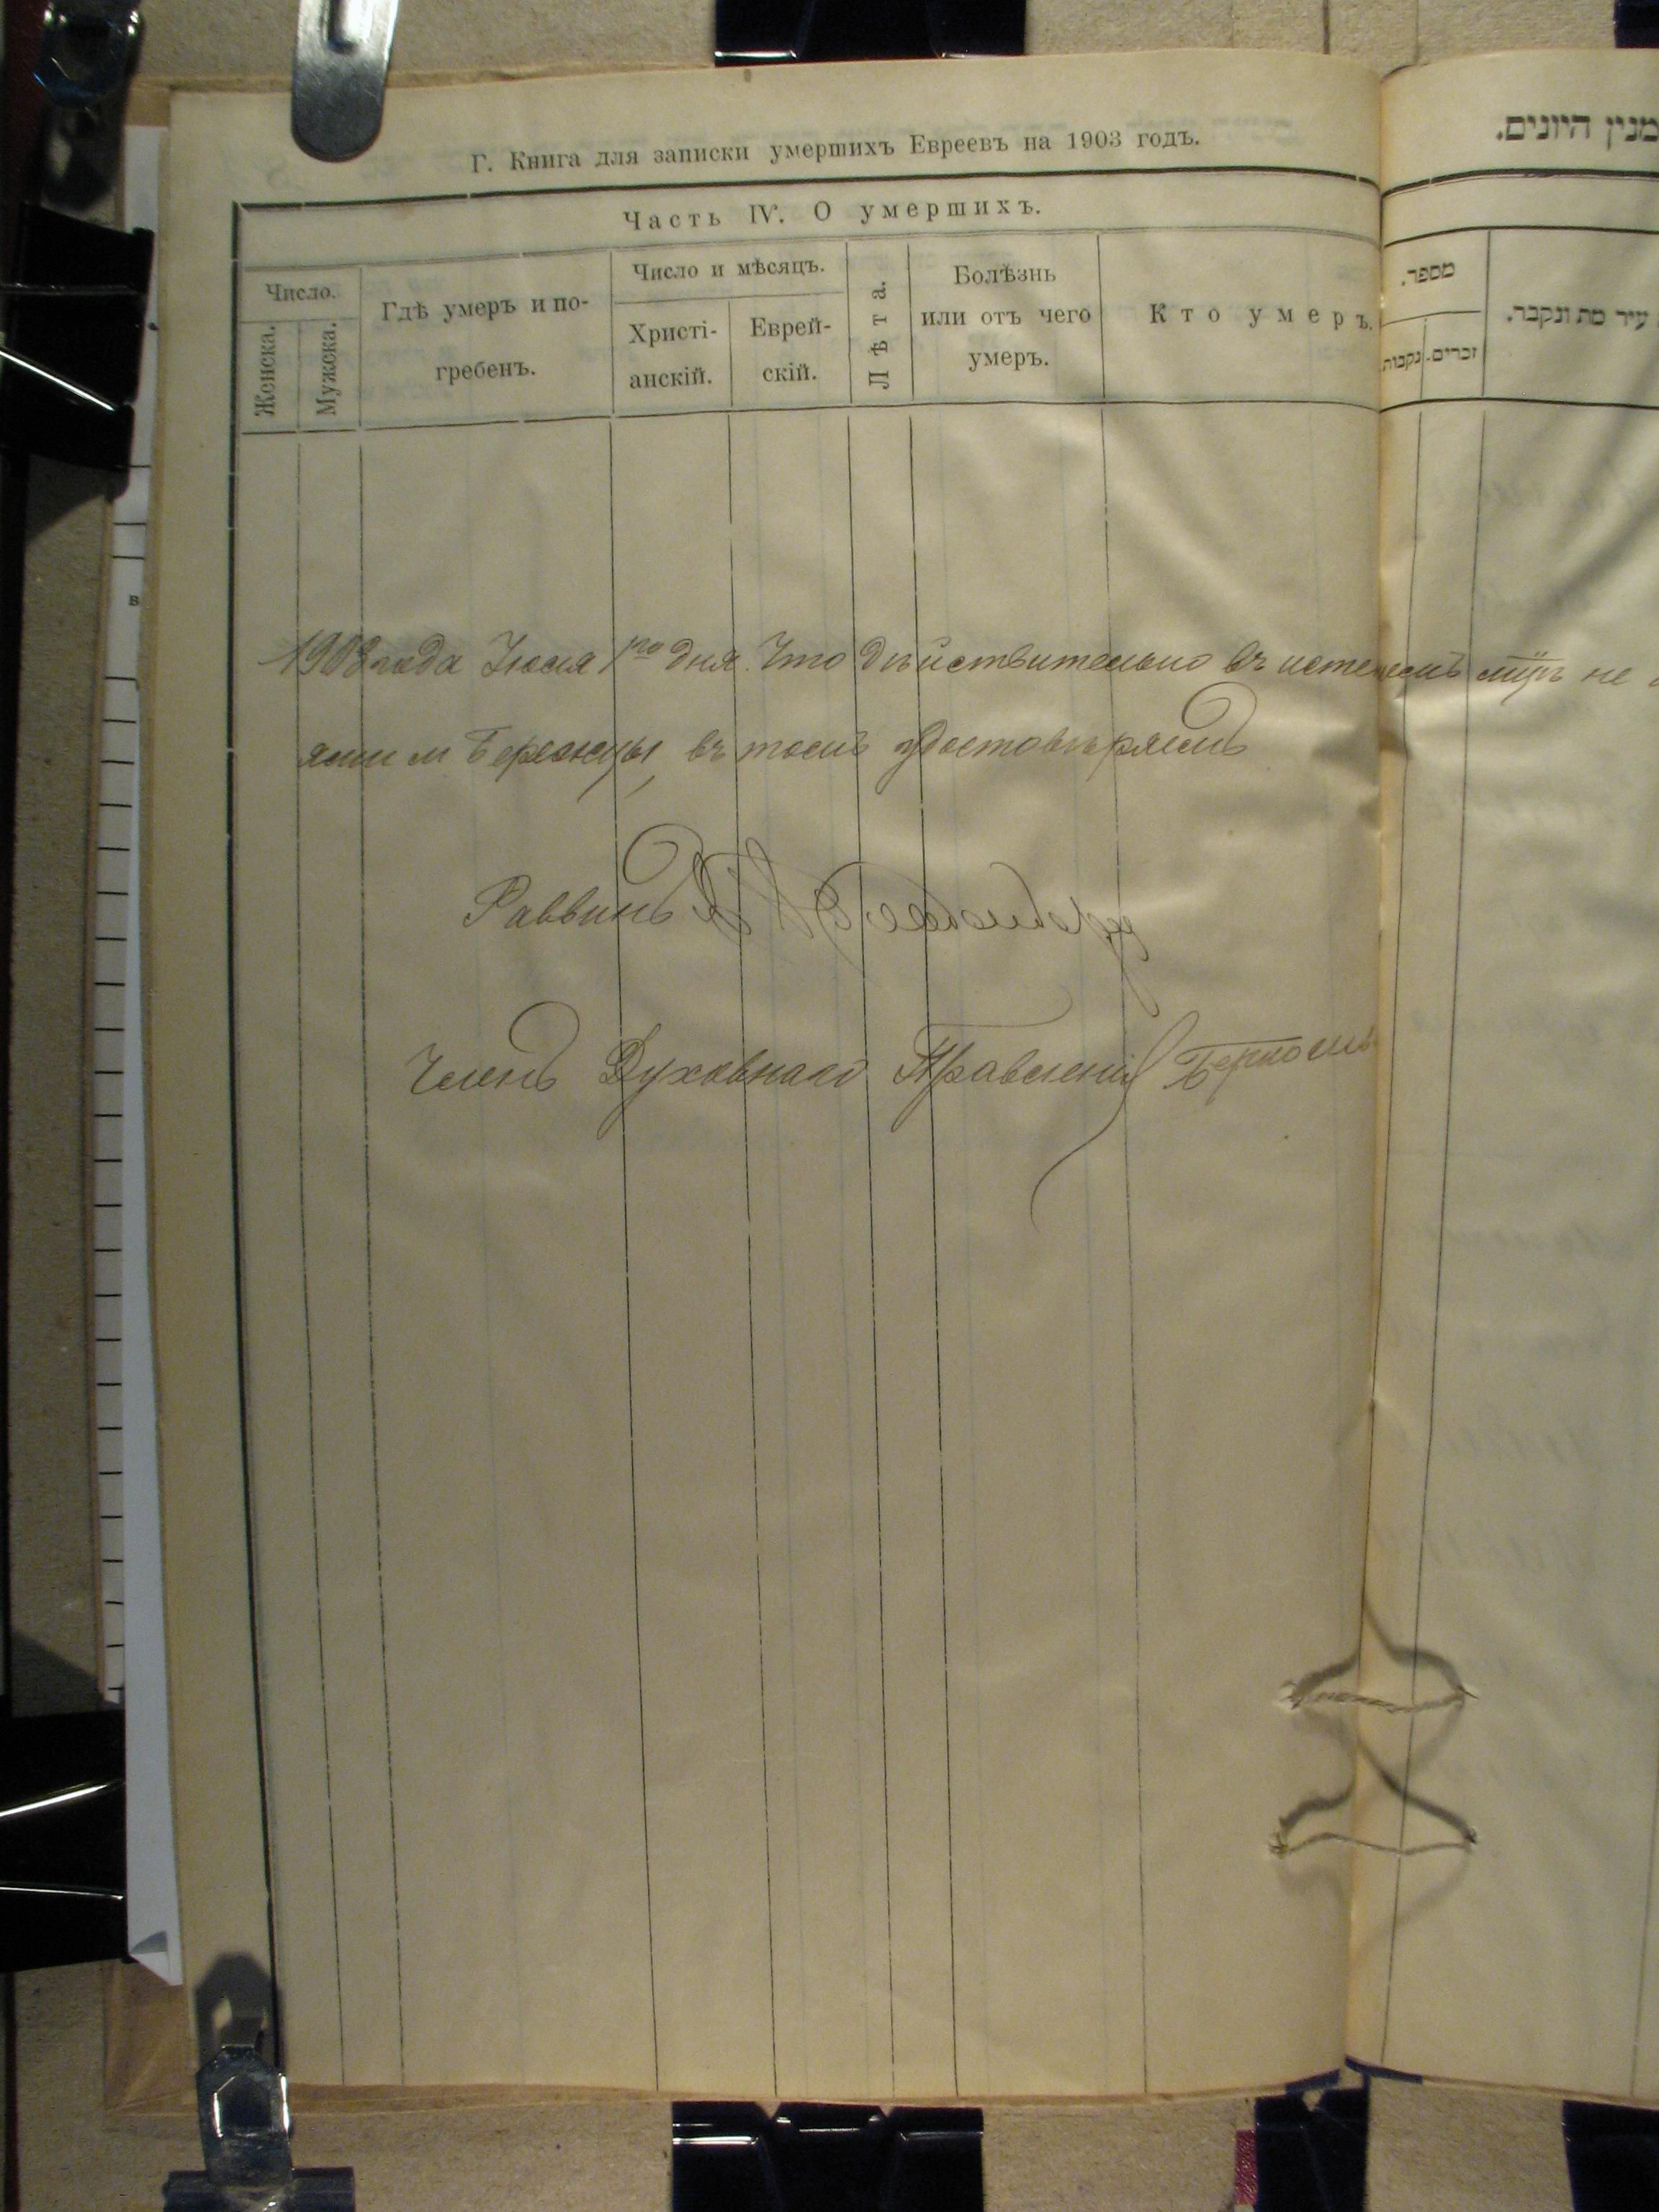 Г. Книга для записки умершихъ Евреевъ на 1903 годъ.
Часть IV. О умершихъ.
Число.
Женска.
Мужска.
Гдѣ умеръ и по-
гребенъ.
Число и мѣсяцъ.
Христі-
анскій.
Еврей-
скій.
Лѣта.
Болѣзнь
или отъ чего
умеръ.
Кто умеръ.
מנין היונים.
מספר.
זכרים.
נקבות.
עיר מת ונקבר.
1903 года Іюля 1го дня. Что дѣйствительно въ истекшемъ мцѣ не
м Бережцы, въ томъ удостовѣряемъ
Раввинъ
Членъ Духовнаго Правленія